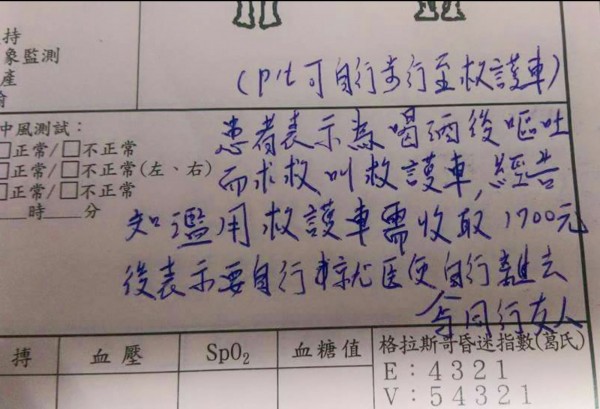 持
象監測
產
(pt可自行步行至救護車)
中風測試：
患者表示為喝酒後嘔吐
□正常/□不正常
而求救叫救護車,經告
□正常/□不正常(左、右)
□正常/□不正常
知濫用救護車需收取1700元
時 分
後表示要自行就医便自行離去
與同行友人
搏 血壓 SpO₂ 血糖值 格拉斯哥昏迷指數(葛氏)
E：4321
V：54321